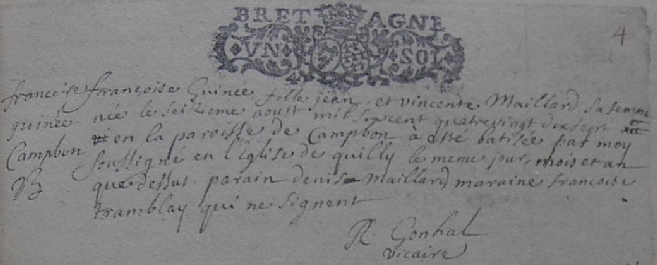 BRETAGNE
VN SOL
4
françoise françoise Guinée fille jean et vincente Maillard sa femme
guinée née le seizeme aoust mil six cent quatrevingt dix sept
Campbon en la paroisse de Campbon à esté batisée par moy
soussigné en l'église de quilly le meme jour, mois et an
que dessus. parain denis Maillard maraine françoise
tramblay qui ne signent
R. Gonhal
vicaire